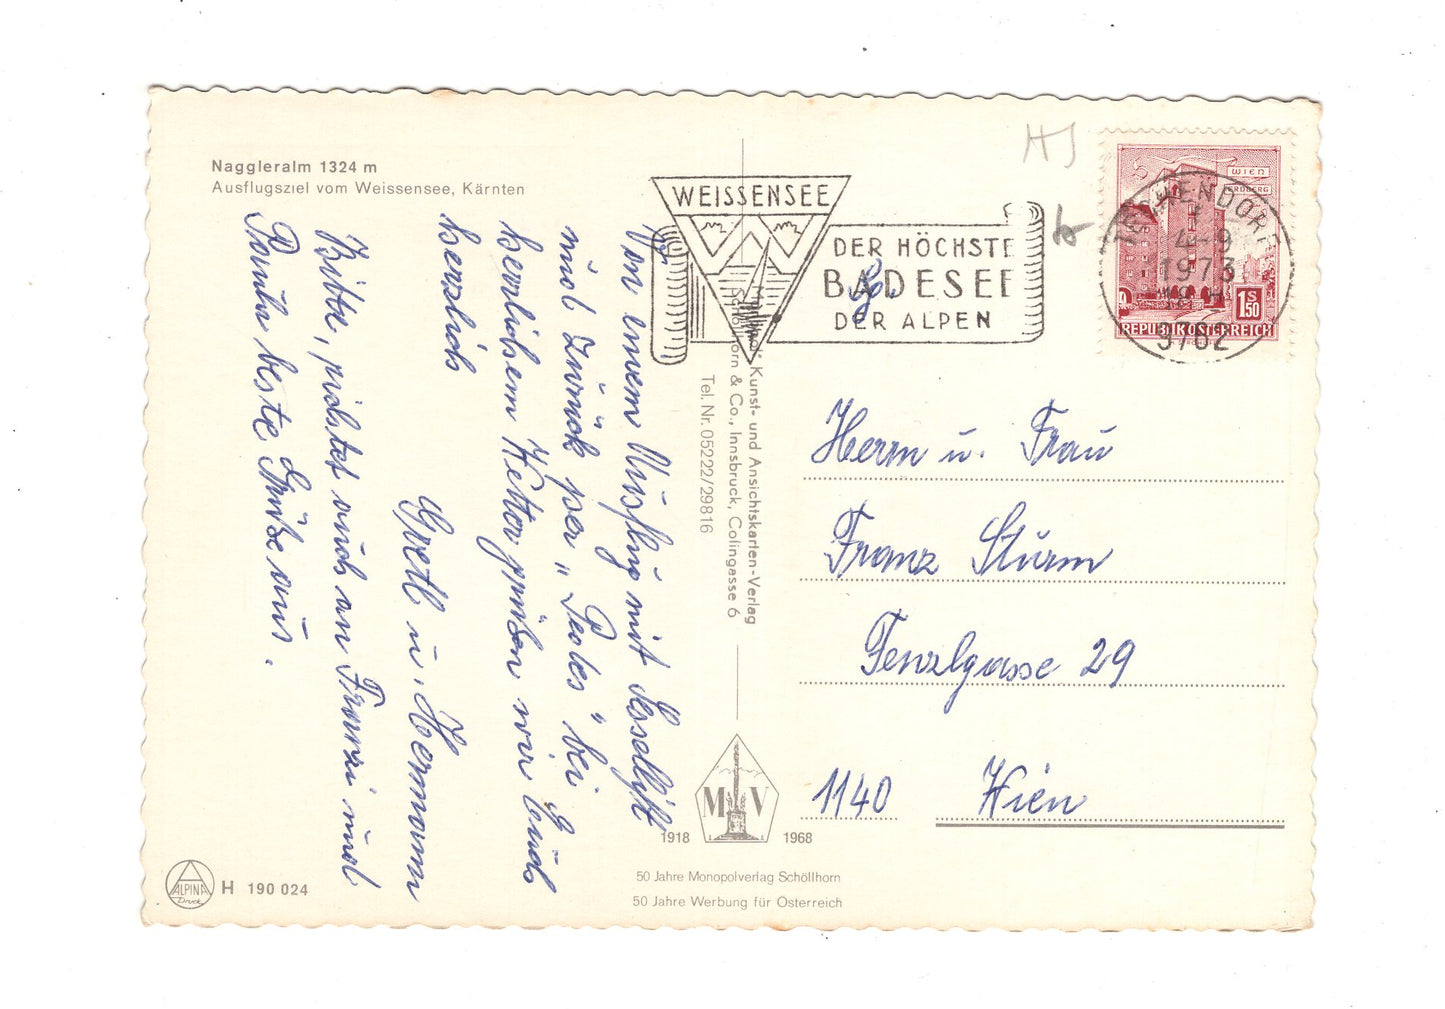 Naggleralm 1324 m
Ausflugsziel vom Weissensee, Kärnten
Von einem Ausflug mit Sessellift
und Zurück per „ Pedes “ bei
herrlichem Wetter grüßen wir Euch
herzlich
Gretl u. Hermann
Bitte, richtet auch an Franzi und
Paula beste Grüße aus.
WEISSENSEE
DER HÖCHSTE
BADESEE
DER ALPEN
TECHENDORF
4-9
1973
18
9762
WIEN
ERDBERG
1S50
REPUBLIK ÖSTERREICH
Kunst- und Ansichtskarten-Verlag
Schöllhorn & Co., Innsbruck, Colingasse 6
Tel. Nr. 05222/29816
Herrn u. Frau
Franz Sturm
Fenzlgasse 29
1140 Wien
M V
1918 1968
50 Jahre Monopolverlag Schöllhorn
50 Jahre Werbung für Österreich
ALPINA
Druck
H 190 024